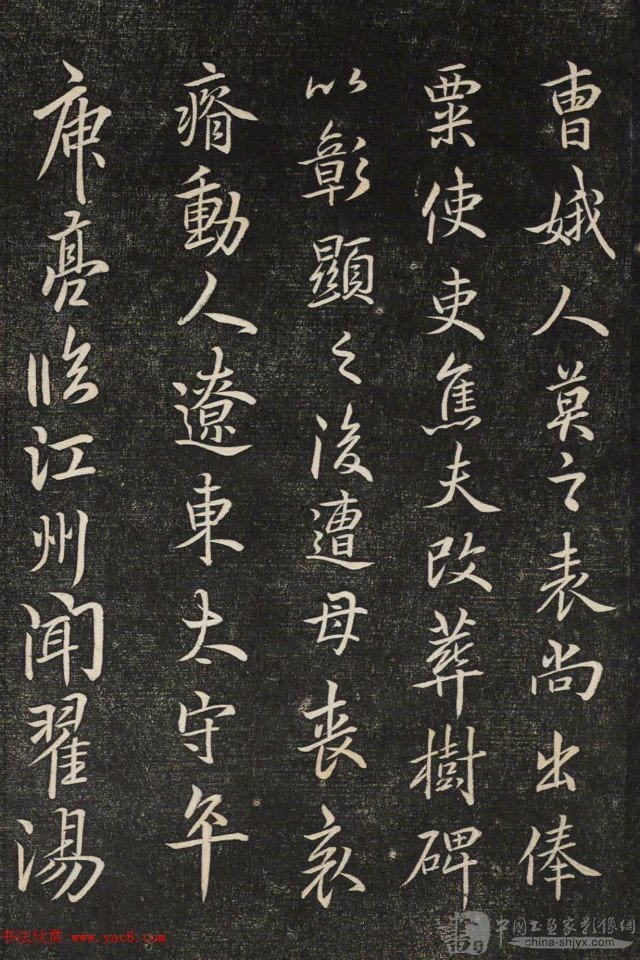 曹娥人莫之表尚出俸
粟使吏焦夫改葬樹碑
以彰顯之後遭母喪哀
瘠動人遼東太守卒
庾亮臨江州聞翟湯
书法欣赏 www.yac8.com
中国书画家影像網
china-shjyx.com